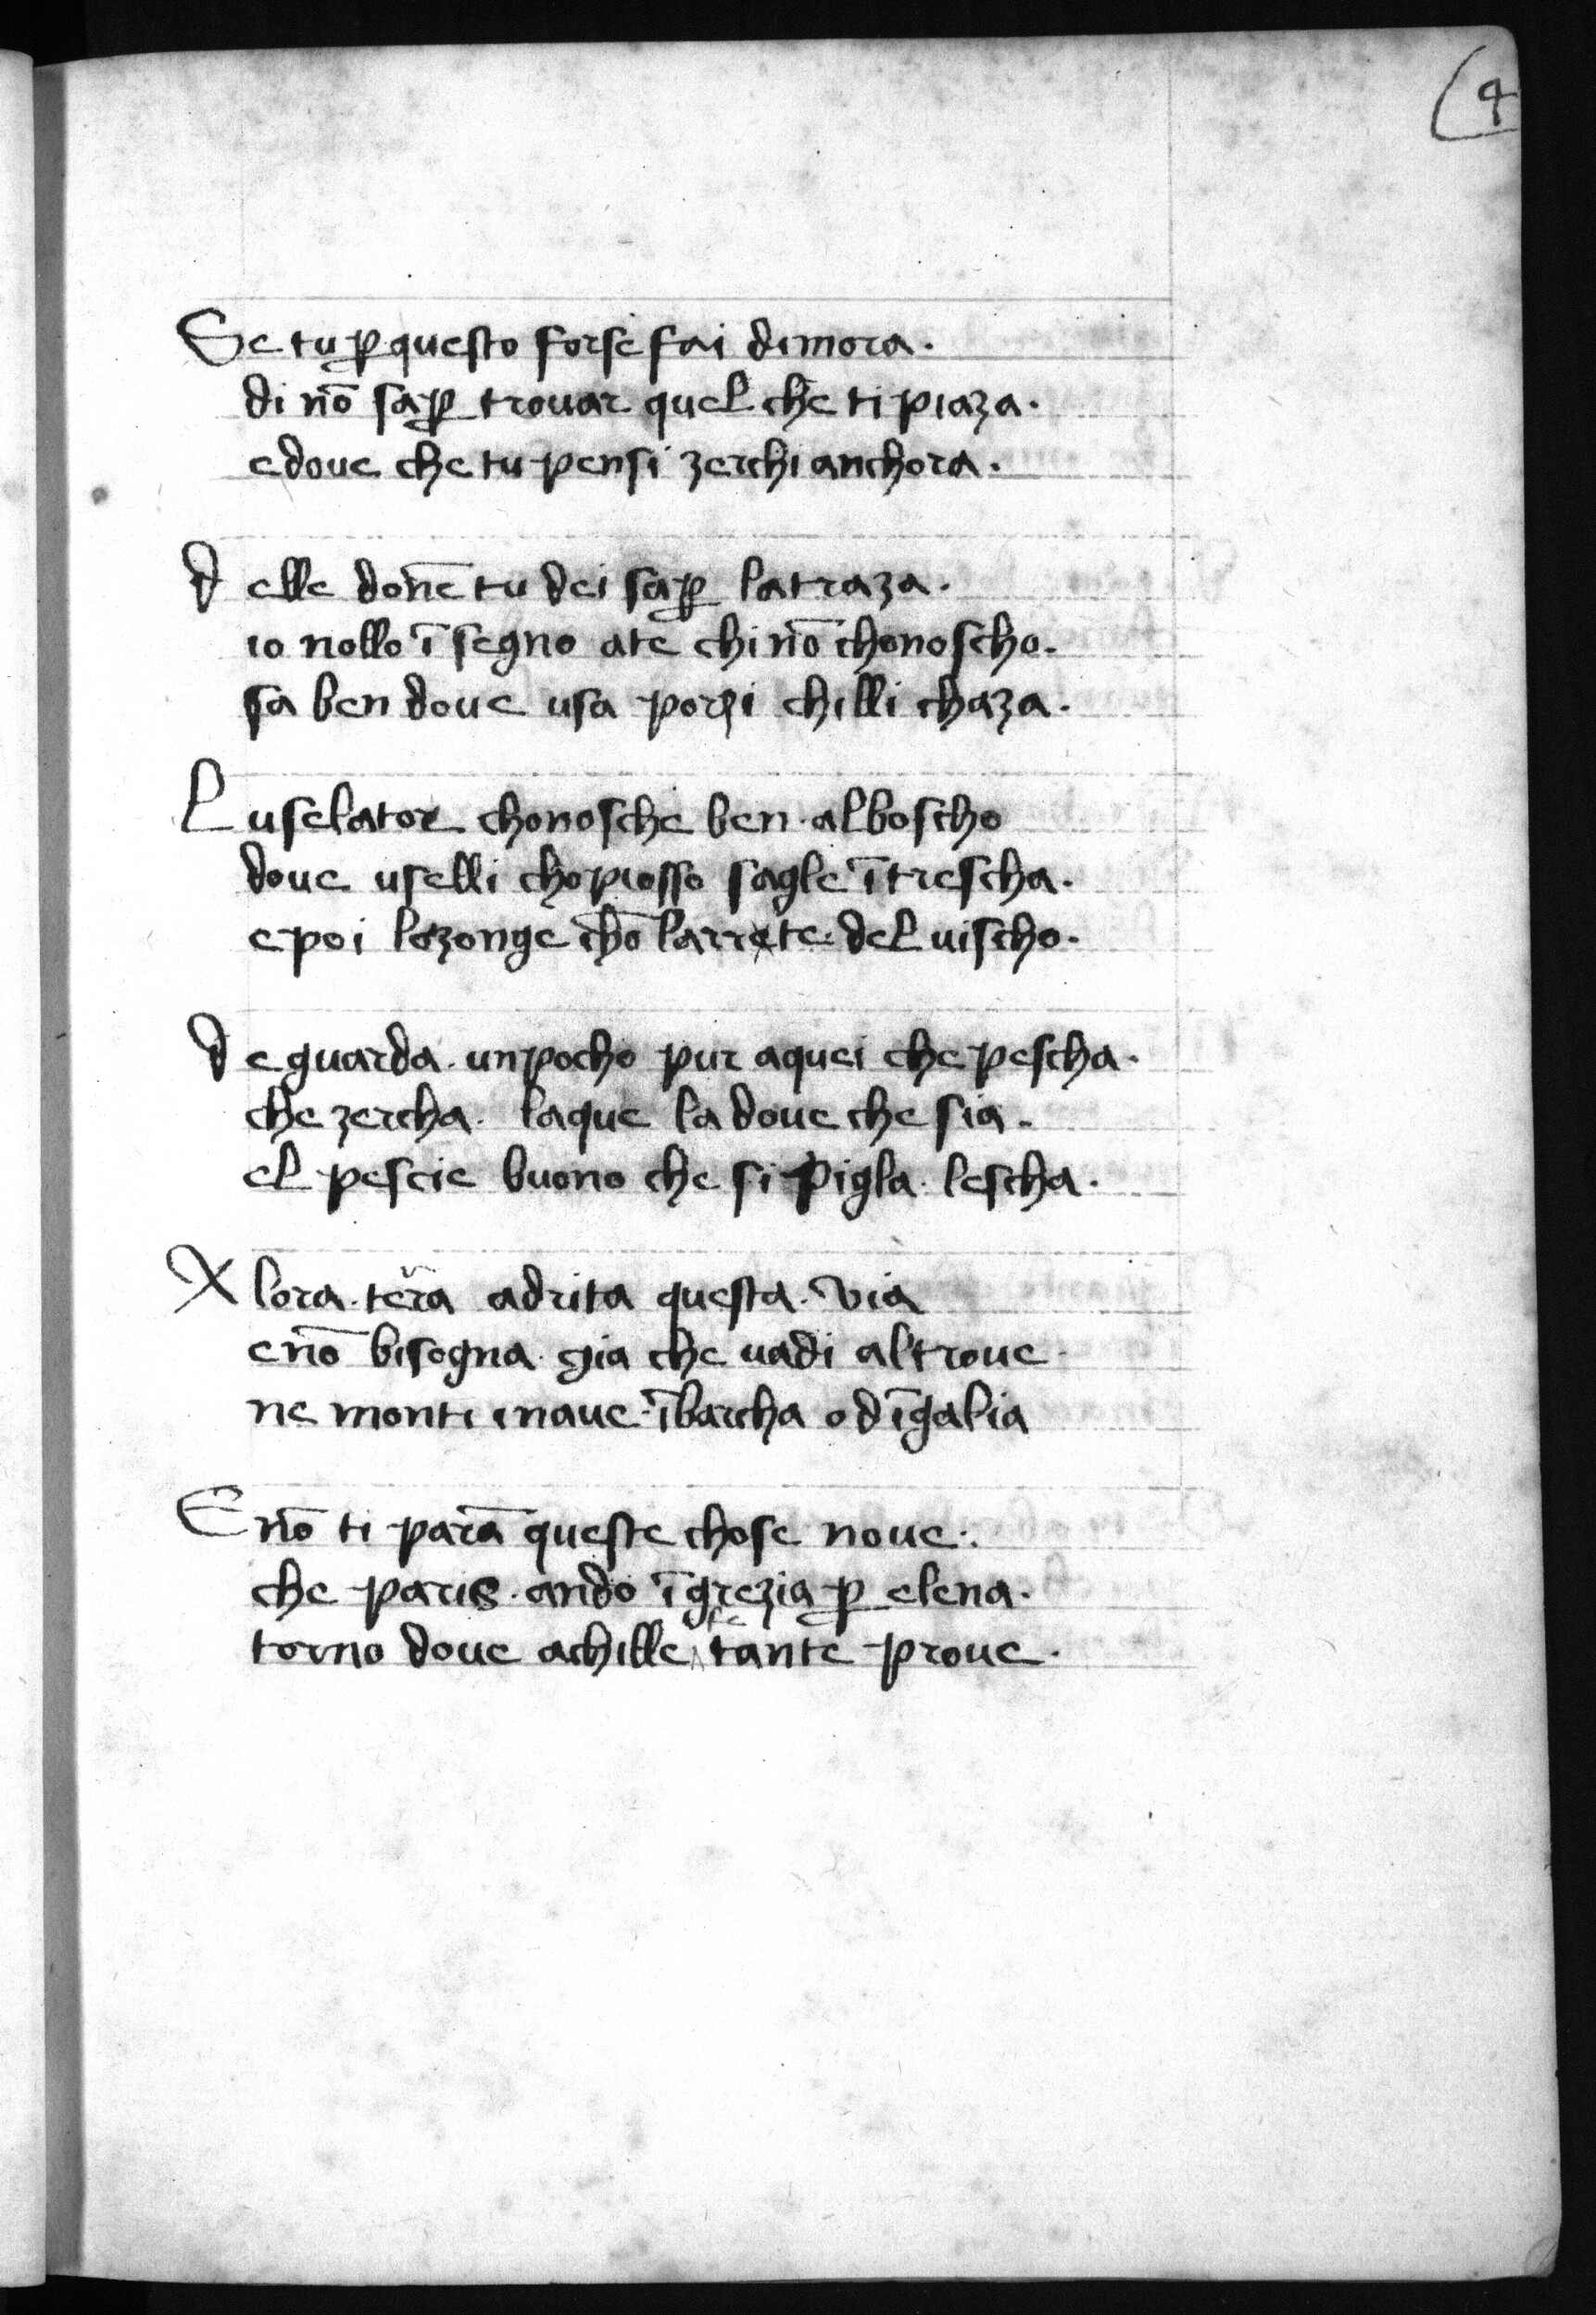 4
Se tu ꝑ questo forse fai dimora.
di nō saꝑ trouar quel chē ti piaza.
e doue che tu pensi zerchi anchora.
d elle donē tu dei saꝑ la traza.
io nollo ī segno a te chi nō chonoscho.
sa ben doue usa porzi chilli chaza.
L uselator chonosche ben. al boscho
doue uselli chopiosso sagle ī trescha.
e poi lozonge chō larrete del uischo.
d e guarda. un pocho pur a quei che pescha.
che zercha. laque la doue che sia.
el pescie buono che si pigla. lescha.
A lora. tera adrita questa. via
e nō bisogna. gia che uadi altroue.
ne monti inaue. ī barcha od ī galia
E nō ti parā queste chose noue.
che paris. ando ī grezia ꝑ elena.
torno doue achille fe tante proue.